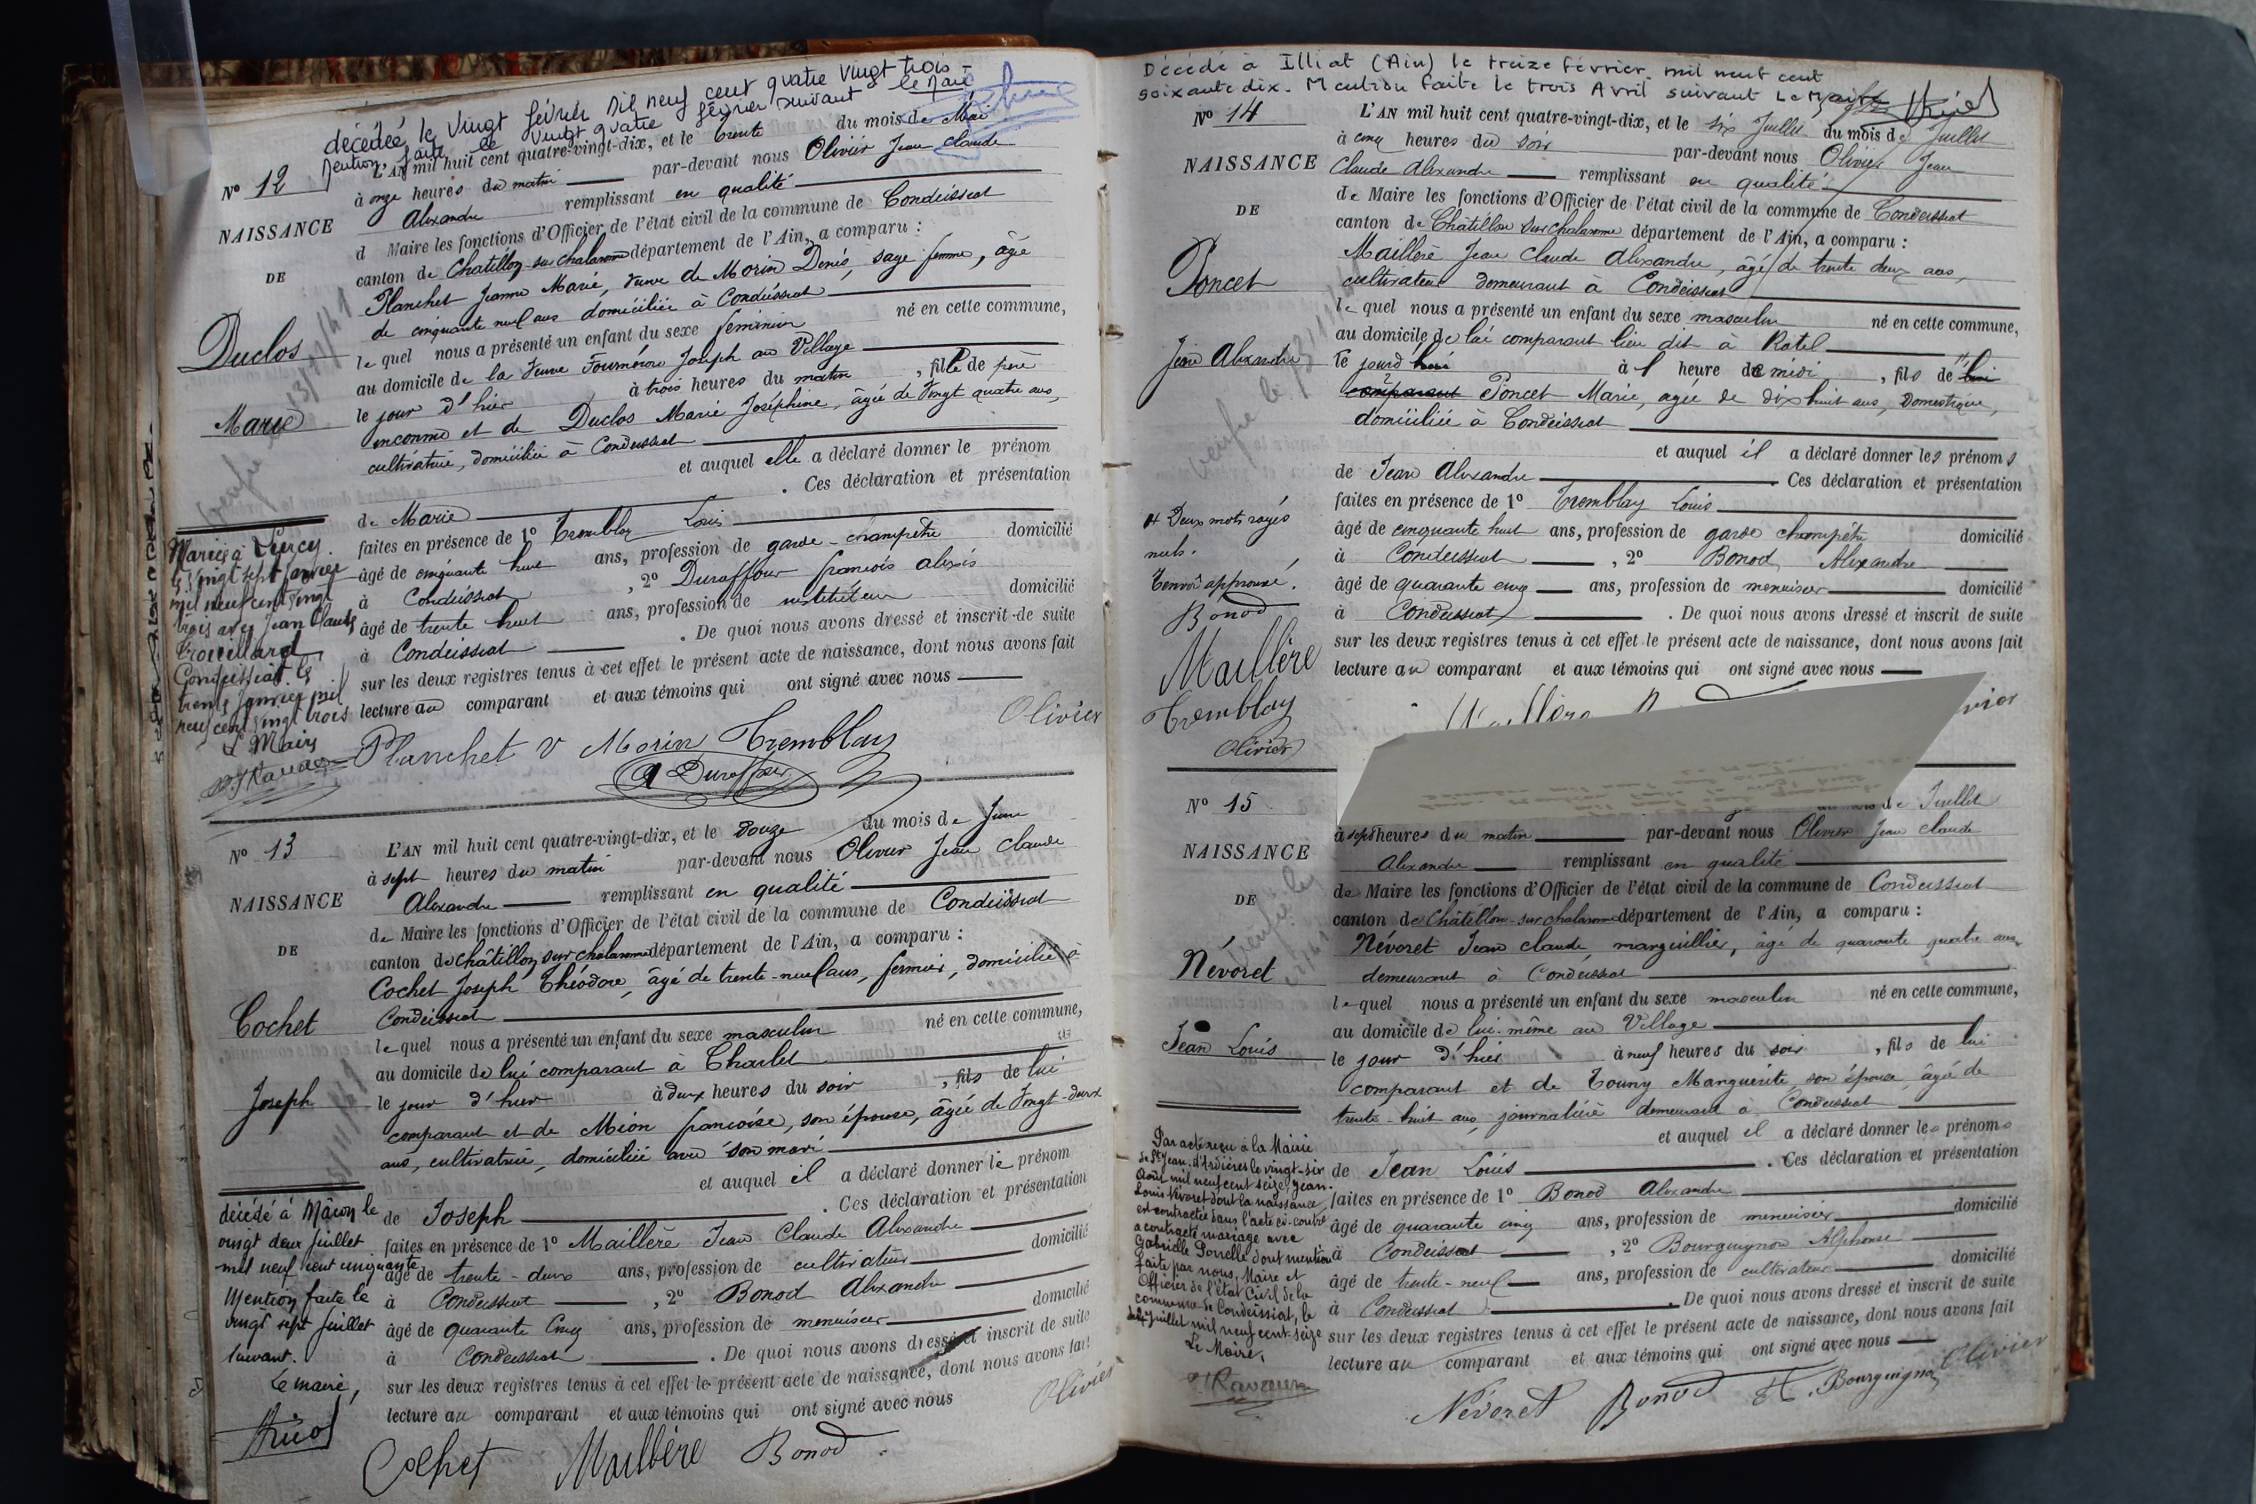 décédée le Vingt février Mil neuf cent quatre Vingt trois -
Mention faite le Vingt quatre février suivant le Maire
N° 12
NAISSANCE
DE
Duclos
Marie
L'AN mil huit cent quatre-vingt-dix, et le trente du mois de Mai
à onze heures du matin par-devant nous Olivier Jean Claude
Alexandre remplissant en qualité
de Maire les fonctions d'Officier de l'état civil de la commune de Condeissiat
canton de Chatillon-sur-Chalaronne département de l'Ain, a comparu :
Planchet Jeanne Marie, veuve de Morin Denis, sage femme, âgée
de cinquante neuf ans domiciliée à Condeissiat
le quel nous a présenté un enfant du sexe feminin né en cette commune,
au domicile de la Veuve Joseph au Village
le jour d'hier à trois heures du matin, fille de père
inconnu et de Duclos Marie Joséphine, âgée de Vingt quatre ans,
cultivatrice, domiciliée à Condeissiat
et auquel elle a déclaré donner le prénom
de Marie . Ces déclaration et présentation
faites en présence de 1° Tremblay Louis
âgé de cinquante huit ans, profession de garde-champêtre domicilié
à Condeissiat , 2° Duraffour françois alexis
âgé de trente huit ans, profession de instituteur domicilié
à Condeissiat . De quoi nous avons dressé et inscrit de suite
sur les deux registres tenus à cet effet le présent acte de naissance, dont nous avons fait
lecture au comparant et aux témoins qui ont signé avec nous
Planchet V Morin Tremblay Olivier
Duraffour
Mariée à Lurcy
le Vingt sept janvier
mil neuf cent vingt
trois avec Jean Claude
Trouillard
Condeissiat le
trente janvier mil
neuf cent vingt trois
Le Maire
N° 13
NAISSANCE
DE
Cochet
Joseph
L'AN mil huit cent quatre-vingt-dix, et le douze du mois de Juin
à sept heures du matin par-devant nous Olivier Jean Claude
Alexandre remplissant en qualité
de Maire les fonctions d'Officier de l'état civil de la commune de Condeissiat
canton de Châtillon sur Chalaronne département de l'Ain, a comparu :
Cochet Joseph Théodore, âgé de trente-neuf ans, fermier, domicilié à
Condeissiat
le quel nous a présenté un enfant du sexe masculin né en cette commune,
au domicile de lui comparant à Charlet
le jour d'hier à deux heures du soir, fils de lui
comparant et de Mion françoise, son épouse, âgée de Vingt-deux
ans, cultivatrice, domiciliée avec son mari
et auquel il a déclaré donner le prénom
de Joseph . Ces déclaration et présentation
faites en présence de 1° Maillère Jean Claude Alexandre
âgé de trente-deux ans, profession de cultivateur domicilié
à Condeissiat , 2° Bonod Alexandre
âgé de quarante Cinq ans, profession de menuisier domicilié
à Condeissiat . De quoi nous avons dressé et inscrit de suite
sur les deux registres tenus à cet effet le présent acte de naissance, dont nous avons fait
lecture au comparant et aux témoins qui ont signé avec nous
Olivier
Cochet Maillère Bonod
décédé à Mâcon le
vingt deux juillet
mil neuf cent cinquante
Mention faite le
vingt sept juillet
suivant.
Le maire,
Décédé à Illiat (Ain) le treize Février mil neuf cent
soixante dix. Mention faite le trois Avril suivant Le Maire
N° 14
NAISSANCE
DE
Poncet
Jean Alexandre
L'AN mil huit cent quatre-vingt-dix, et le six Juillet du mois de Juillet
à cinq heures du soir par-devant nous Olivier Jean
Claude Alexandre remplissant en qualité
de Maire les fonctions d'Officier de l'état civil de la commune de Condeissiat
canton de Châtillon sur Chalaronne département de l'Ain, a comparu :
Maillère Jean Claude Alexandre, âgé de trente deux ans,
cultivateur demeurant à Condeissiat
le quel nous a présenté un enfant du sexe masculin né en cette commune,
au domicile de lui comparant lieu dit à Ratel
le jourd'hui à 1 heure de midi, fils de lui
comparant Poncet Marie, agée de dix huit ans, Domestique,
domiciliée à Condeissiat
et auquel il a déclaré donner les prénoms
de Jean Alexandre Ces déclaration et présentation
faites en présence de 1° Tremblay Louis
âgé de cinquante huit ans, profession de garde champêtre domicilié
à Condeissiat , 2° Bonod Alexandre
âgé de quarante cinq ans, profession de menuisier domicilié
à Condeissiat . De quoi nous avons dressé et inscrit de suite
sur les deux registres tenus à cet effet le présent acte de naissance, dont nous avons fait
lecture au comparant et aux témoins qui ont signé avec nous
Deux mots rayés
nuls.
renvoi approuvé.
Bonod
Maillère
Tremblay
Olivier
N° 15
NAISSANCE
DE
Névoret
Jean Louis
de Juillet
à sept heures du matin par-devant nous Olivier Jean Claude
Alexandre remplissant en qualité
de Maire les fonctions d'Officier de l'état civil de la commune de Condeissiat
canton de Châtillon-sur-Chalaronne département de l'Ain, a comparu :
Névoret Jean Claude, marguillier, âgé de quarante quatre ans
demeurant à Condeissiat
le quel nous a présenté un enfant du sexe masculin né en cette commune,
au domicile de lui-même au Village
le jour d'hier à neuf heures du soir, fils de lui
comparant et de Touny Marguerite, son épouse, âgée de
trente-huit ans, journalière demeurant à Condeissiat
et auquel il a déclaré donner les prénoms
de Jean Louis . Ces déclaration et présentation
faites en présence de 1° Bonod Alexandre
âgé de quarante cinq ans, profession de menuisier domicilié
à Condeissiat , 2° Bourguignon Alphonse
âgé de trente-neuf ans, profession de cultivateur domicilié
à Condeissiat . De quoi nous avons dressé et inscrit de suite
sur les deux registres tenus à cet effet le présent acte de naissance, dont nous avons fait
lecture au comparant et aux témoins qui ont signé avec nous
Névoret Bonod A. Bourguignon Olivier
Par acte reçu à la Mairie
de St Jean d'Ardières le vingt-six
Août mil neuf cent seize, Jean
Louis Névoret dont la naissance
est contractée dans l'acte ci-contre
a contracté mariage avec
Gabrielle dont mention
faite par nous, Maire et
Officier de l'état Civil de la
commune de Condeissiat, le
juillet mil neuf cent seize
Le Maire,